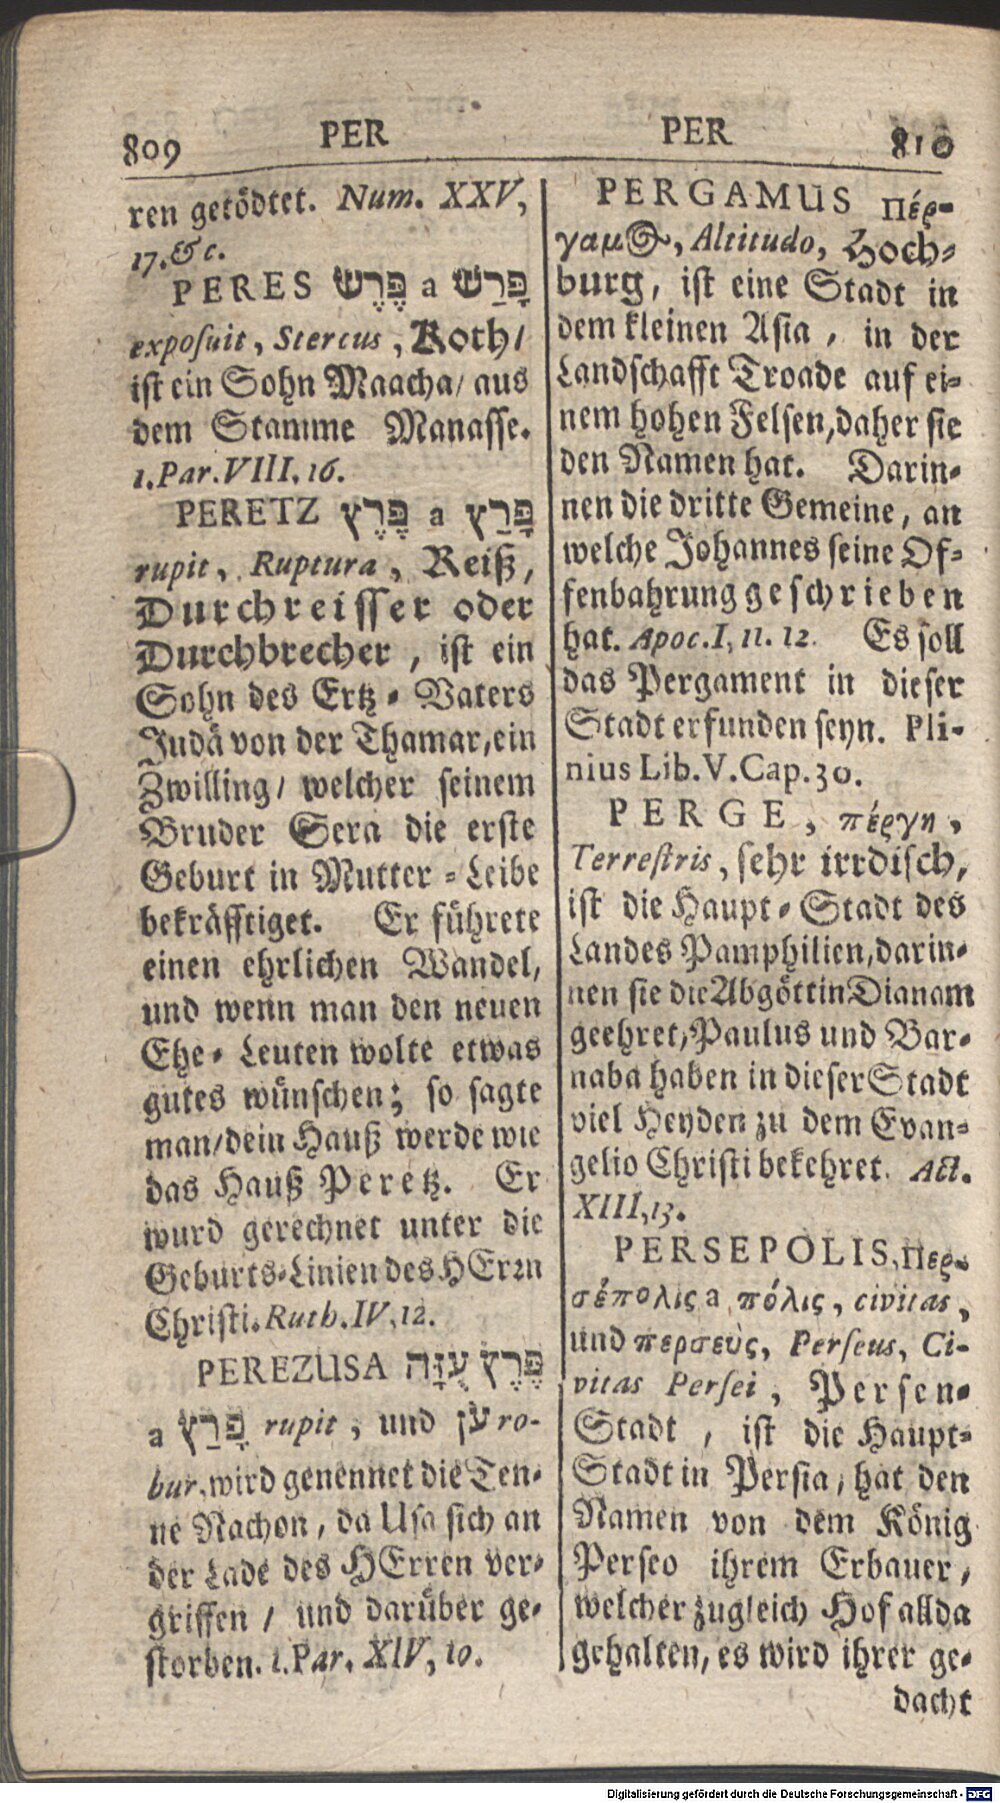 809 PER PER 810
ren getödtet. Num. XXV,
17. &c.
PERES פֶּרֶשׁ a פָּרַשׁ
exposuit, Stercus, Koth/
ist ein Sohn Maacha/ aus
dem Stamme Manasse.
1. Par. VIII, 16.
PERETZ פֶּרֶץ a פָּרַץ
rupit, Ruptura, Reiß,
Durchreisser oder
Durchbrecher, ist ein
Sohn des Ertz-Vaters
Judä von der Thamar, ein
Zwilling/ welcher seinem
Bruder Sera die erste
Geburt in Mutter-Leibe
bekräfftiget. Er führete
einen ehrlichen Wandel,
und wenn man den neuen
Ehe-Leuten wolte etwas
gutes wünschen; so sagte
man/ dein Hauß werde wie
das Hauß Peretz. Er
wurd gerechnet unter die
Geburts-Linien des HErrn
Christi. Ruth. IV, 12.
PEREZUSA פֶּרֶץ עֻזָּה
a פָּרַץ rupit, und עֹז ro-
bur, wird genennet die Ten-
ne Nachon, da Usa sich an
der Lade des HErren ver-
griffen/ und darüber ge-
storben. 1. Par. XIV, 10.
PERGAMUS Πέρ-
γαμος, Altitudo, Hoch-
burg, ist eine Stadt in
dem kleinen Asia, in der
Landschafft Troade auf ei-
nem hohen Felsen, daher sie
den Namen hat. Darin-
nen die dritte Gemeine, an
welche Johannes seine Of-
fenbahrung geschrieben
hat. Apoc. I, 11. 12. Es soll
das Pergament in dieser
Stadt erfunden seyn. Pli-
nius Lib. V. Cap. 30.
PERGE, πέργη,
Terrestris, sehr irrdisch,
ist die Haupt-Stadt des
Landes Pamphilien, darin-
nen sie die Abgöttin Dianam
geehret, Paulus und Bar-
naba haben in dieser Stadt
viel Heyden zu dem Evan-
gelio Christi bekehret. Act.
XIII, 13.
PERSEPOLIS, Περ-
σέπολις a πόλις, civitas,
und περσεὺς, Perseus, Ci-
vitas Persei, Persen-
Stadt, ist die Haupt-
Stadt in Persia, hat den
Namen von dem König
Perseo ihrem Erbauer,
welcher zugleich Hof allda
gehalten, es wird ihrer ge-
dacht
Digitalisierung gefördert durch die Deutsche Forschungsgemeinschaft - DFG